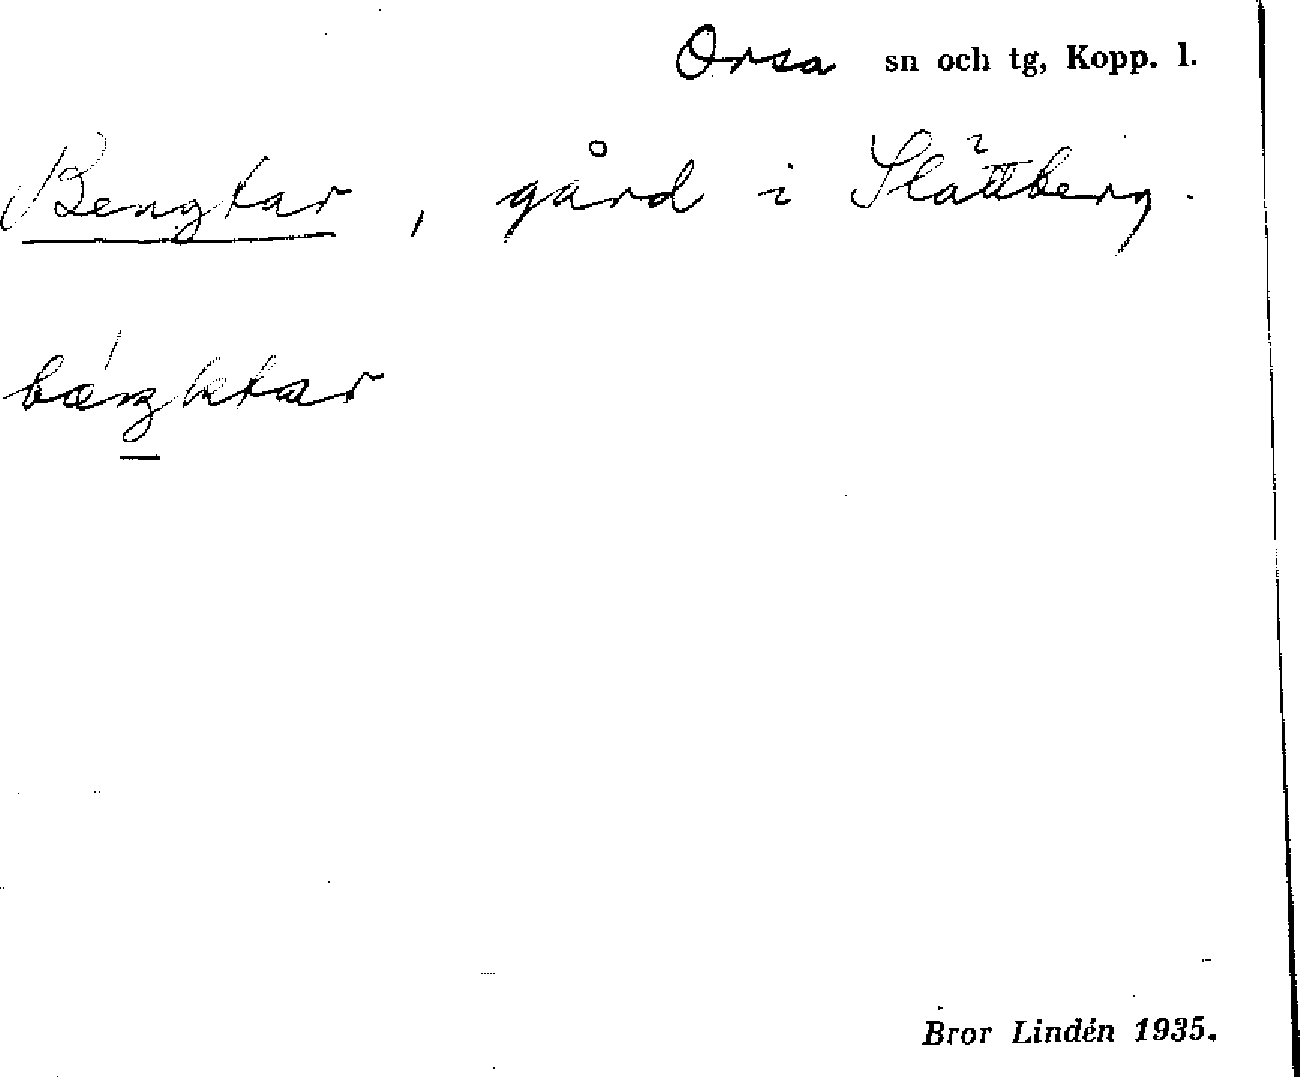 Orsa sn och tg, Kopp. l.
Bengtar, gård i Slättberg.
bæŋktar
Bror Lindén 1935.